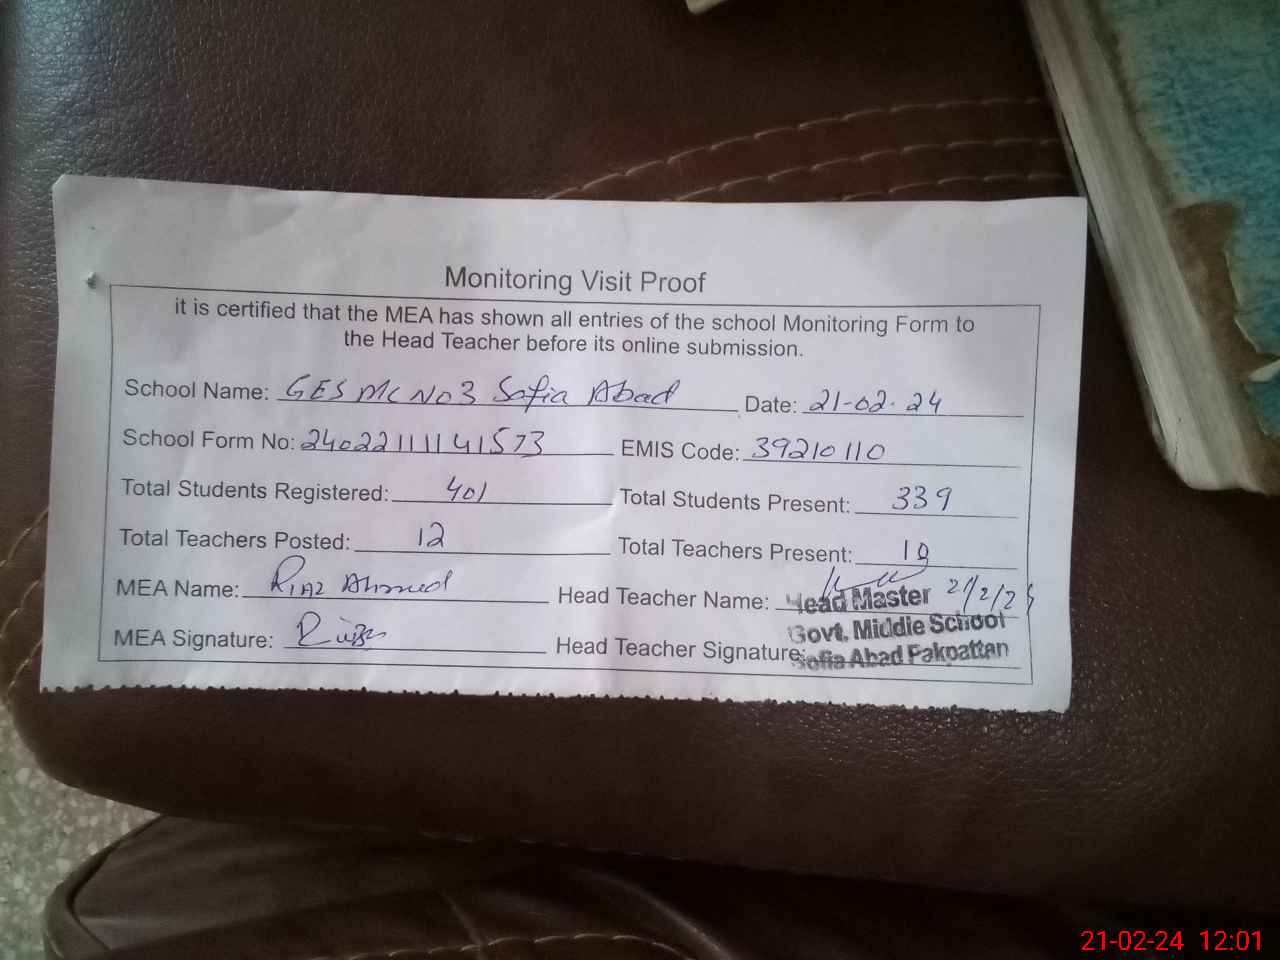 Monitoring Visit Proof
it is certified that the MEA has shown all entries of the school Monitoring Form to
the Head Teacher before its online submission.
School Name: GES MC No 3 Sofia Abad Date: 21-02-24
School Form No: 24022111141573 EMIS Code: 39210110
Total Students Registered: 401 Total Students Present: 339
Total Teachers Posted: 12 Total Teachers Present:
MEA Name: Riaz Ahmed Head Teacher Name:
Head Master 21/2/24
Govt. Middle School
MEA Signature: Head Teacher Signature:
Sofia Abad Pakpattan
21-02-24 12:01